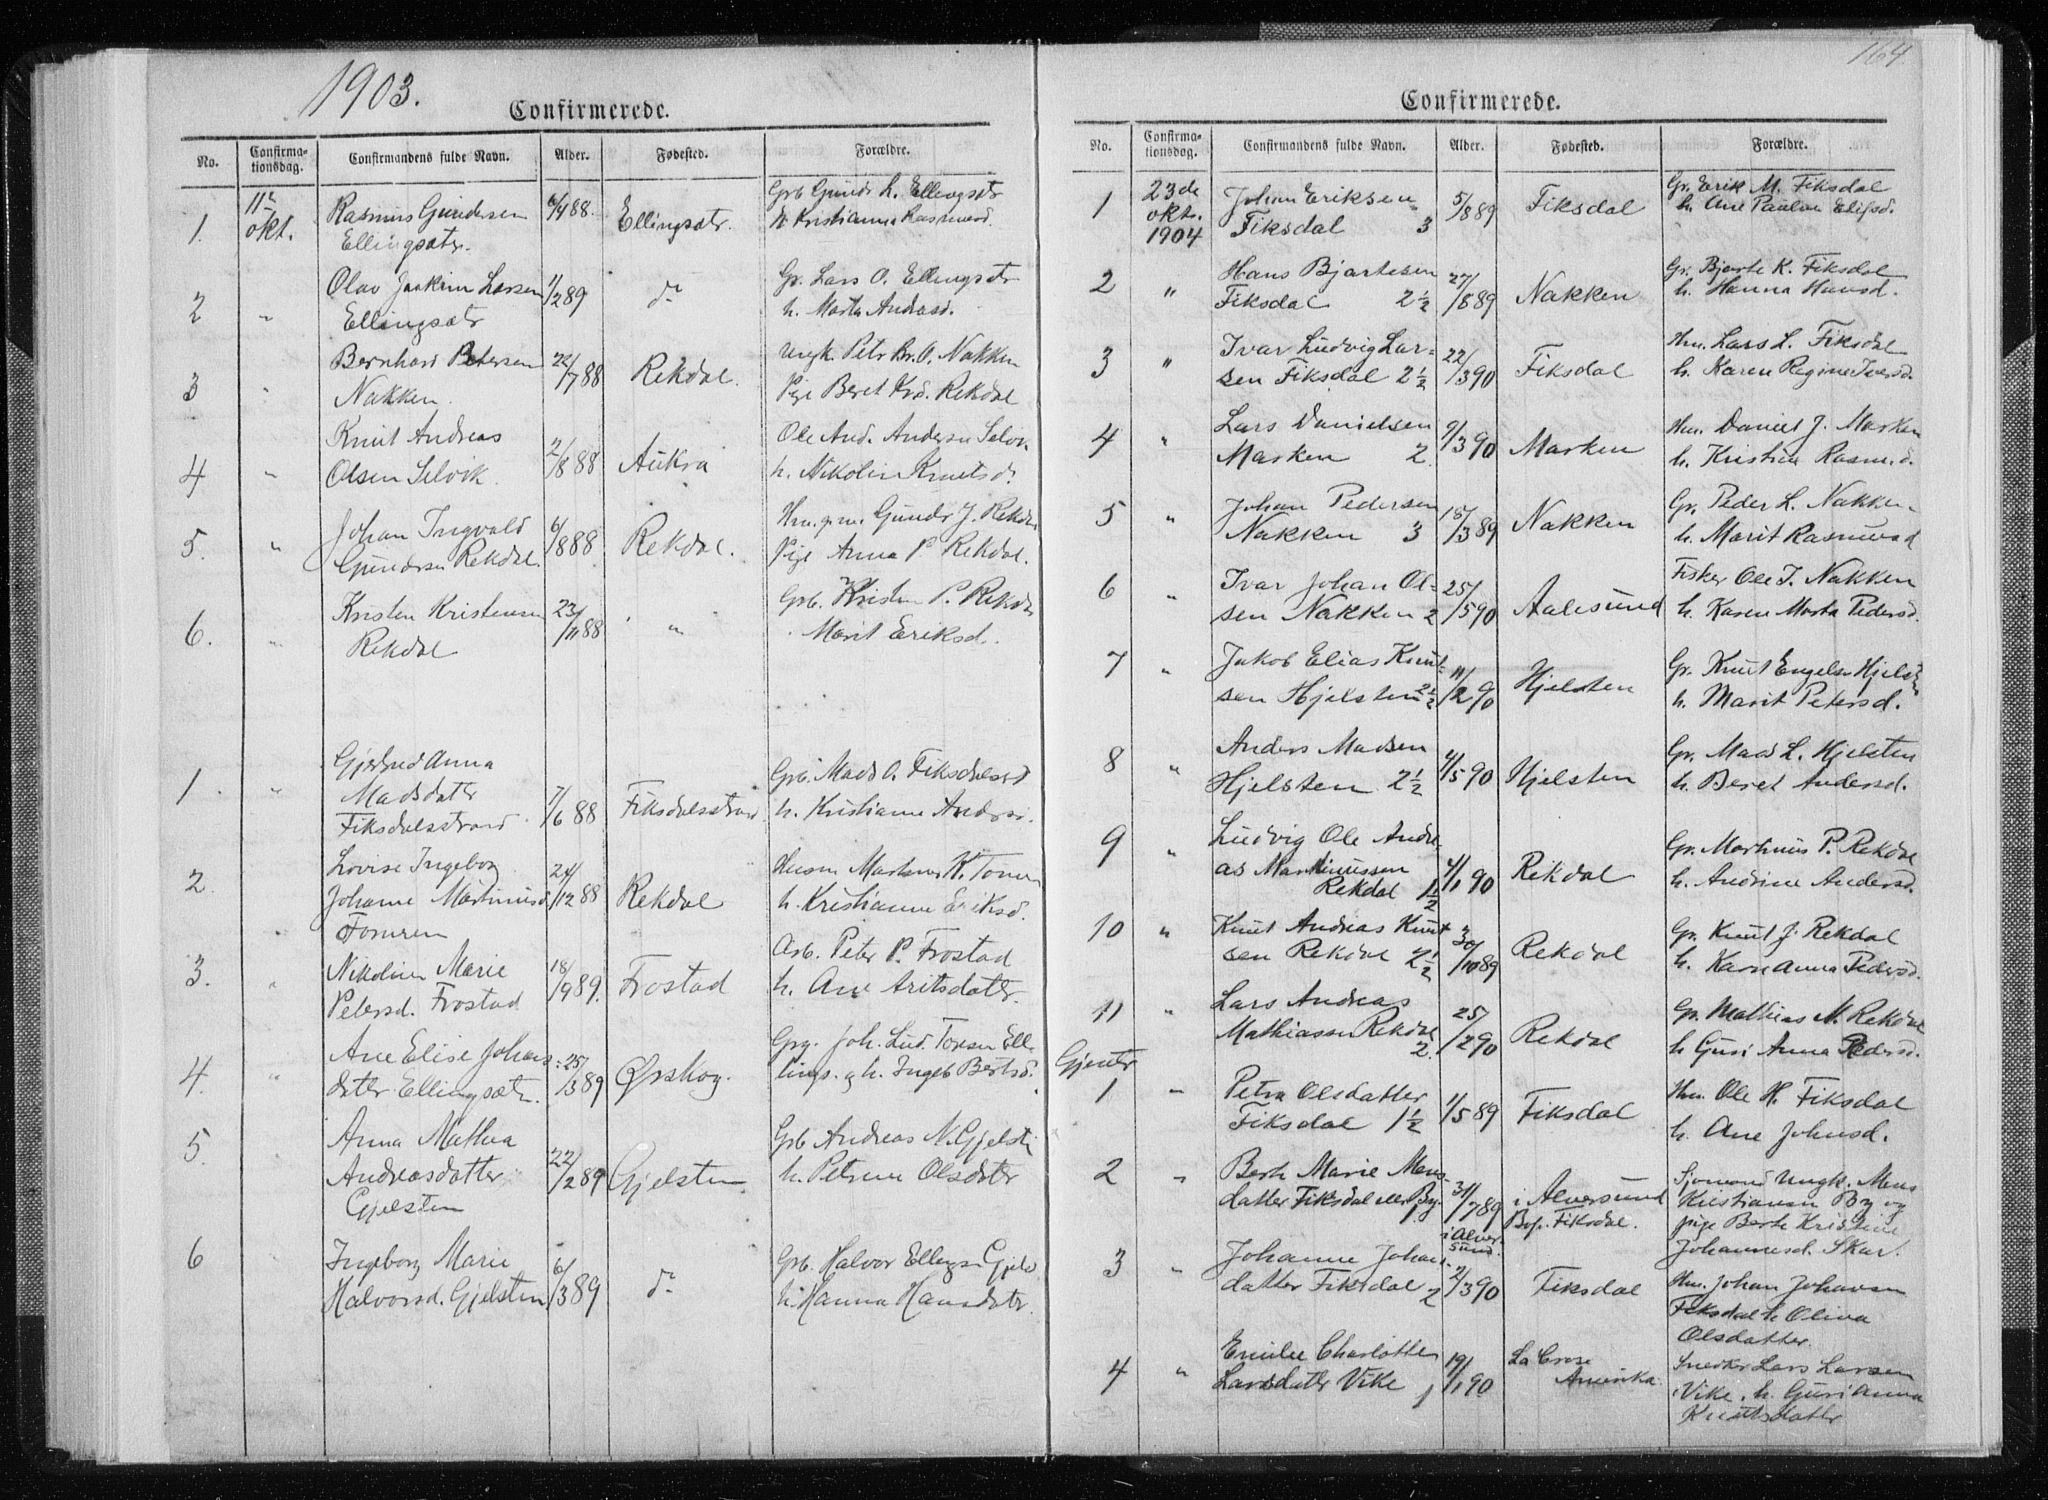 1903.
Confirmerede.
No. Confirma-tionsdag. Confirmandens fulde Navn. Alder. Fødested. Forældre.
1. 11te okt. Rasmus Gundersen 6/4 88. Ellingsætr. Grb Gundr L. Ellingsætr
Ellingsætr. h Kristianna Rasmusd.
2 " Olav Joakim Larsen 1/2 89 do Gr. Lars O. Ellingsætr
Ellingsætr h. Marta Andrasd.
3 " Bernhard Petersen 22/7 88 Rekdal. Ungk. Petr Br. O. Nakken
Nakken. Pige Beret Krd. Rekdal
4 " Knut Andreas 2/8 88 Aukra Ole And. Andersn Selvik
Olsen Selvik. h. Nikolin Knutsd.
5. " Johan Ingvald 6/8 88 Rekdal. Hm. g.m. Gundr J. Rekdal
Gundersn Rekdal. Pige Anna P Rekdal.
6. " Kristen Kristensen 23/11 88 " Grb. Kristen P. Rekdal
Rekdal Marit Eriksd.
1 " Gjertrud Anna Grb. Mads O. Fiksdalsstrd
Madsdatr 7/6 88 Fiksdalsstrand h. Kristianne Andersd.
Fiksdalsstrand
2. Lovise Ingeborg 24/12 88 Rekdal Husm Martinus K. Tomren
Johanne Martinusd. h. Kristianne Eriksd.
Tomren
3. " Nikoline Marie 18/9 89. Frostad Arb. Peter P. Frostad
Petersd. Frostad h. Ane Aritsdatr.
4. Ane Elise Johans- 25/3 89 Ørskog. Grg. Joh. Lud. Toresen Ell-
datr Ellingsætr. ings. g h. Ingeb Bertsd.
5. Anna Mathea 22/2 89 Gjelsten Grb Andreas N. Gjelstn
Andreasdatter h. Petrine Olsdatr
Gjelsten
6 Ingeborg Marie 6/3 89 do Grb. Halvor Ellings. Gjels
Halvorsd. Gjelsten h. Hanna Hansdatr.
164
Confirmerede.
No. Confirma-tionsdag. Confirmandens fulde Navn. Alder. Fødested. Forældre.
1 23de okt. 1904 Johan Eriksen 5/8 89 Fiksdal Gr. Erik M. Fiksdal
Fiksdal 3 h. Ane Paulou Elifsd.
2 " Hans Bjartesen 27/8 89 Nakken Gr. Bjarte K. Fiksdal
Fiksdal 2½ h. Hanna Hansd.
3 " Ivar Ludvig Lar- 22/3 90 Fiksdal Hm. Lars L. Fiksdal
sen Fiksdal 2½ h. Karen Regine Iversd.
4 " Lars Danielsen 9/3 90 Marken Hm. Daniel J. Marken
Marken 2. h. Kristine Rasm.d.
5 " Johan Pedersen 18/3 89 Nakken Gr. Peder L. Nakken
Nakken 3 h. Marit Rasmusd
6 " Ivar Johan Ol- 25/5 90 Aalesund Fisker Ole I. Nakken
sen Nakken 2 h. Karen Marta Pedersd.
7 " Jakob Elias Knut- 11/2 90 Hjelsten Gr. Knut Engelsn Hjelstn
sen Hjelsten 2½ h. Marit Petersd.
8 " Anders Madsen 4/5 90 Hjelsten Gr. Mads L. Hjelsten
Hjelsten 2½ h. Beret Andersd.
9 " Ludvig Ole Andre- 4/1 90 Rekdal Gr. Martinus P. Rekdal
as Martinussen h. Andrine Andersd.
Rekdal 1½
10 " Knut Andreas Knut- 30/10 89 Rekdal Gr. Knut J. Rekdal
sen Rekdal 2½ h. Karn Anna Pedersd.
11 " Lars Andreas 25/2 90 Rekdal Gr. Mathias N. Rekdal
Mathiassn Rekdal 2. h Guri Anna Pedersd.
Gjentr
1 " Petra Olsdatter 1/5 89 Fiksdal Hm. Ole H. Fiksdal
Fiksdal 1½ h. Ane Johnsd.
2 " Berte Marie Mons- 31/7 89 i Alversund Sjømand Ungk. Mons
datter Fiksdal eller By. 1 i Alver-sund. Bop. Fiksdal. Kristiansen By og
pige Berte Kristine
Johannesd. Skar.
3 " Johanne Johans- 2/3 90 Fiksdal Hm. Johan Johansen
datter Fiksdal 2 Fiksdal h. Oliva
Olsdatter.
4 " Emilie Charlotte 19/1 90 La Crose Snedkr Lars Larsen
Larsdatr Vike 1 Amerika. Vike. h. Guri Anna
Knutsdatr